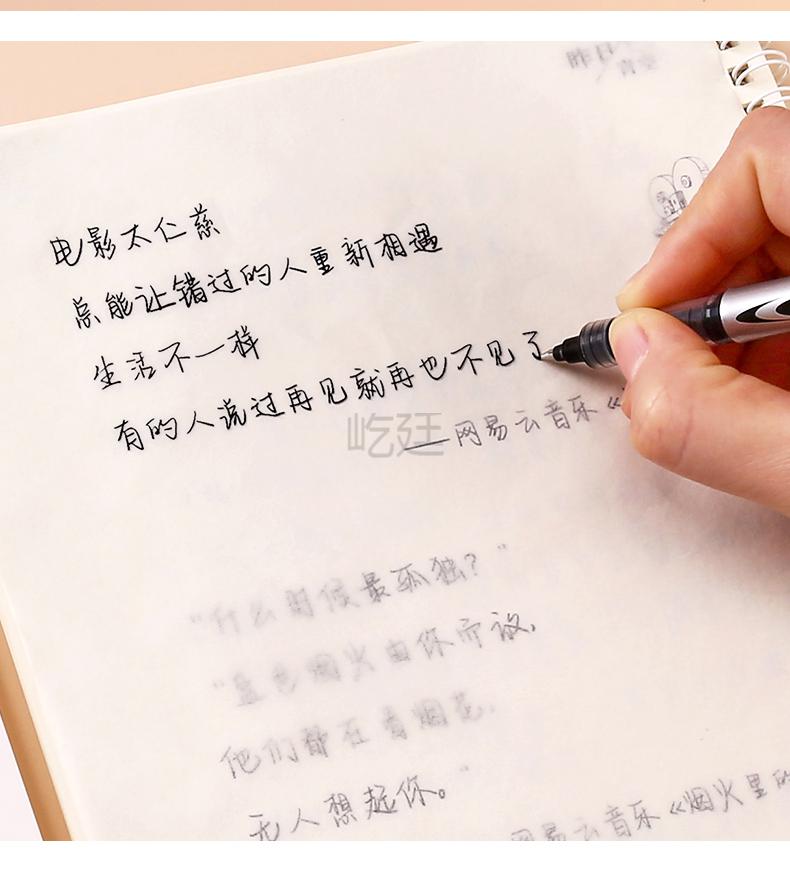 昨日
青空
电影太仁慈
总能让错过的人重新相遇
生活不一样
有的人说过再见就再也不见了
屹廷
——网易云音乐《
“什么时候最孤独？”
“蓝色烟火由你而设，
他们都在看烟花，
无人想起你。”
网易云音乐《烟火里的